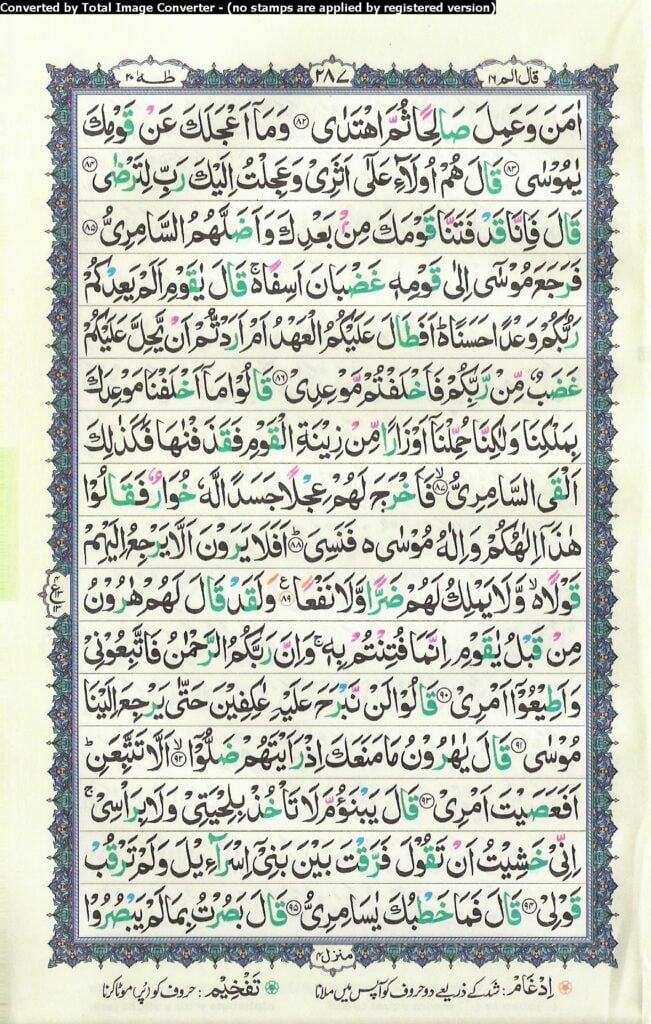 Converted by Total Image Converter - (no stamps are applied by registered version)
قال الم ١٦
٢٨٧
طٰهٰ ٢٠
اٰمَنَ وَعَمِلَ صَالِحًا ثُمَّ اهْتَدٰى ﴿٨٢﴾ وَمَآ اَعْجَلَكَ عَنْ قَوْمِكَ
يٰمُوْسٰى ﴿٨٣﴾ قَالَ هُمْ اُولَآءِ عَلٰٓى اَثَرِىْ وَعَجِلْتُ اِلَيْكَ رَبِّ لِتَرْضٰى ﴿٨٤﴾
قَالَ فَاِنَّا قَدْ فَتَنَّا قَوْمَكَ مِنْۢ بَعْدِكَ وَاَضَلَّهُمُ السَّامِرِىُّ ﴿٨٥﴾
فَرَجَعَ مُوْسٰٓى اِلٰى قَوْمِهٖ غَضْبَانَ اَسِفًا ۚ قَالَ يٰقَوْمِ اَلَمْ يَعِدْكُمْ
رَبُّكُمْ وَعْدًا حَسَنًا ؕ اَفَطَالَ عَلَيْكُمُ الْعَهْدُ اَمْ اَرَدْتُّمْ اَنْ يَّحِلَّ عَلَيْكُمْ
غَضَبٌ مِّنْ رَّبِّكُمْ فَاَخْلَفْتُمْ مَّوْعِدِىْ ﴿٨٦﴾ قَالُوْا مَآ اَخْلَفْنَا مَوْعِدَكَ
بِمَلْكِنَا وَلٰكِنَّا حُمِّلْنَآ اَوْزَارًا مِّنْ زِيْنَةِ الْقَوْمِ فَقَذَفْنٰهَا فَكَذٰلِكَ
اَلْقَى السَّامِرِىُّ ﴿٨٧﴾ۙ فَاَخْرَجَ لَهُمْ عِجْلًا جَسَدًا لَّهٗ خُوَارٌ فَقَالُوْا
هٰذَآ اِلٰهُكُمْ وَاِلٰهُ مُوْسٰى ە فَنَسِىَ ﴿٨٨﴾ؕ اَفَلَا يَرَوْنَ اَلَّا يَرْجِعُ اِلَيْهِمْ
قَوْلًا ە ۙ وَّلَا يَمْلِكُ لَهُمْ ضَرًّا وَّلَا نَفْعًا ﴿٨٩﴾ع وَلَقَدْ قَالَ لَهُمْ هٰرُوْنُ
مِنْ قَبْلُ يٰقَوْمِ اِنَّمَا فُتِنْتُمْ بِهٖ ۚ وَاِنَّ رَبَّكُمُ الرَّحْمٰنُ فَاتَّبِعُوْنِىْ
وَاَطِيْعُوْٓا اَمْرِىْ ﴿٩٠﴾ قَالُوْا لَنْ نَّبْرَحَ عَلَيْهِ عٰكِفِيْنَ حَتّٰى يَرْجِعَ اِلَيْنَا
مُوْسٰى ﴿٩١﴾ قَالَ يٰهٰرُوْنُ مَا مَنَعَكَ اِذْ رَاَيْتَهُمْ ضَلُّوْٓا ﴿٩٢﴾ۙ اَلَّا تَتَّبِعَنِ ؕ
اَفَعَصَيْتَ اَمْرِىْ ﴿٩٣﴾ قَالَ يَبْنَؤُمَّ لَا تَاْخُذْ بِلِحْيَتِىْ وَلَا بِرَاْسِىْ ۚ
اِنِّىْ خَشِيْتُ اَنْ تَقُوْلَ فَرَّقْتَ بَيْنَ بَنِىْٓ اِسْرَآءِيْلَ وَلَمْ تَرْقُبْ
قَوْلِىْ ﴿٩٤﴾ قَالَ فَمَا خَطْبُكَ يٰسَامِرِىُّ ﴿٩٥﴾ قَالَ بَصُرْتُ بِمَا لَمْ يَبْصُرُوْا
منزل ٤
اِدغَام: شد کے ذریعے دو حروف کو آپس میں ملانا
تَفْخِيْم: حروف کو (پُر) موٹا کرنا